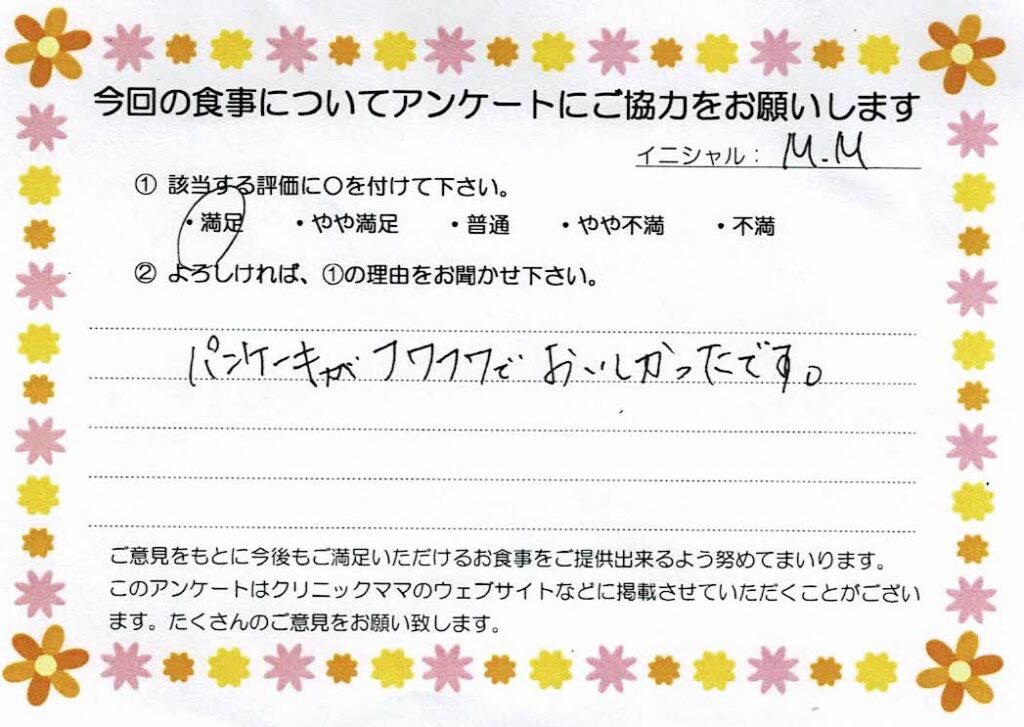 今回の食事についてアンケートにご協力をお願いします
イニシャル： M.M
① 該当する評価に〇を付けて下さい。
・満足 ・やや満足 ・普通 ・やや不満 ・不満
② よろしければ、①の理由をお聞かせ下さい。
パンケーキが フワフワで おいしかったです。
ご意見をもとに今後もご満足いただけるお食事をご提供出来るよう努めてまいります。
このアンケートはクリニックママのウェブサイトなどに掲載させていただくことがござい
ます。たくさんのご意見をお願い致します。